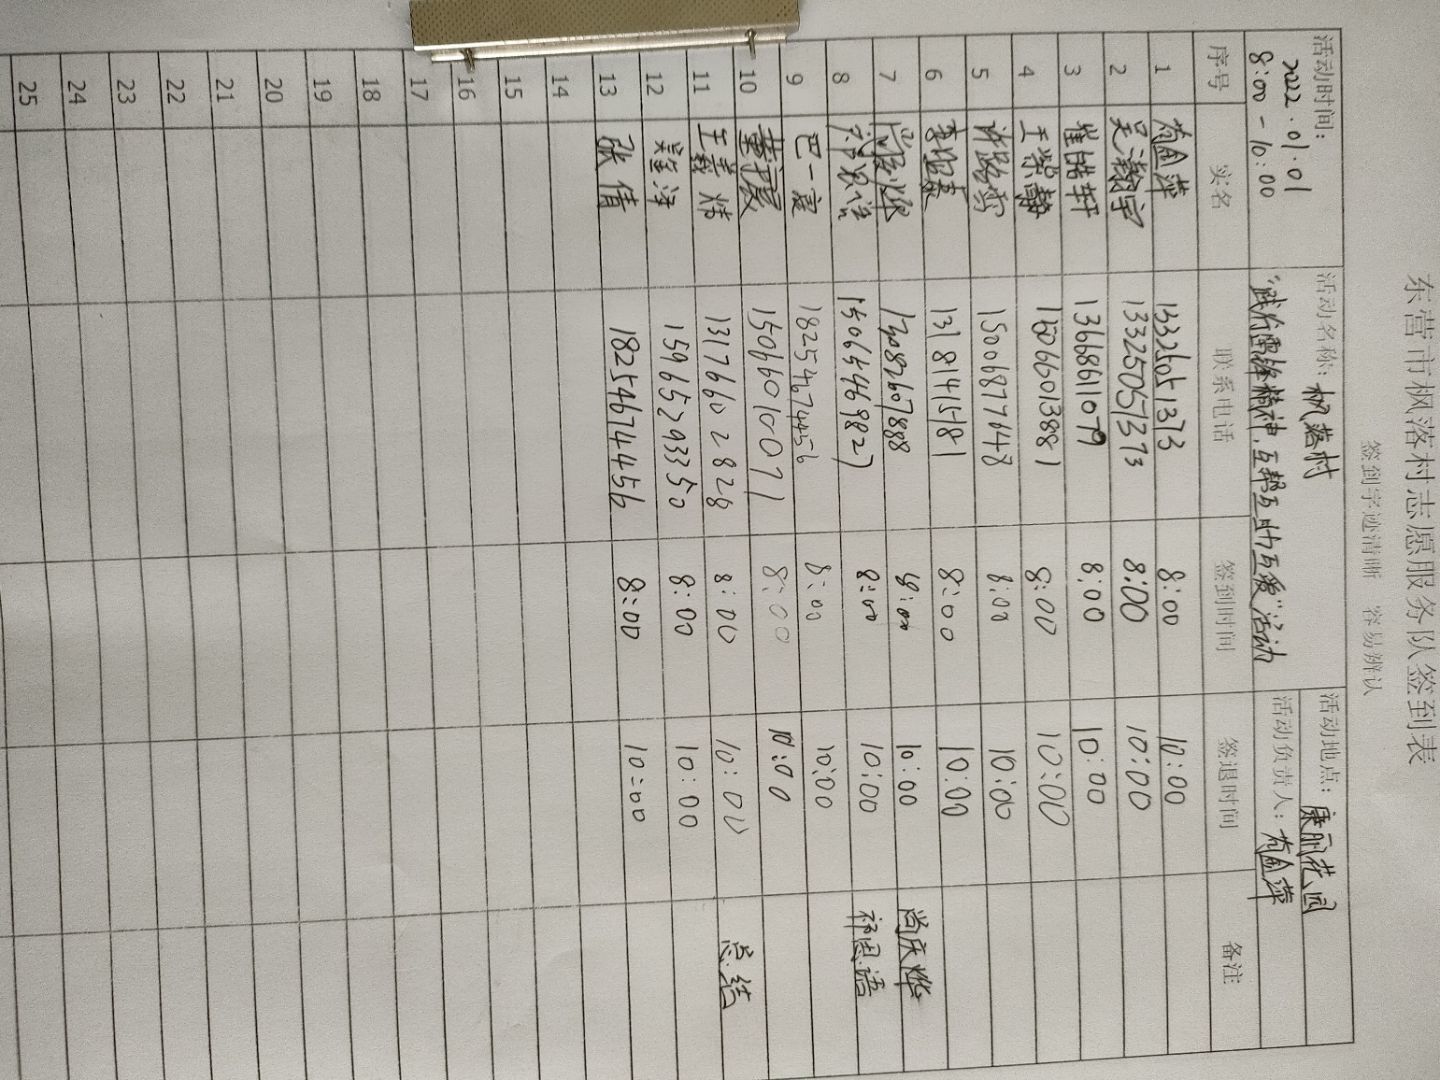 东营市枫落村志愿服务队签到表
签到字迹清晰 容易辨认
活动时间: 2022.01.01 8:00-10:00
活动名称: 枫落村 "践行雷锋精神,互帮互助互爱"活动
活动地点: 康丽花园
活动负责人:
序号 实名 联系电话 签到时间 签退时间 备注
1 13325051373 8:00 10:00
2 吴瀚宇 13325051373 8:00 10:00
3 崔皓轩 13668611079 8:00 10:00
4 王荣静 15066013881 8:00 10:00
5 许路雪 15006877648 8:00 10:00
6 13181415181 8:00 10:00
7 13082607888 8:00 10:00 尚庆烨
8 15065469827 8:00 10:00 祁恩语
9 巴一宸 18254674456 8:00 10:00
10 15066010071 8:00 10:00
11 王义炜 13176602828 8:00 10:00 总结
12 15965293350 8:00 10:00
13 张倩 18254674456 8:00 10:00
14
15
16
17
18
19
20
21
22
23
24
25